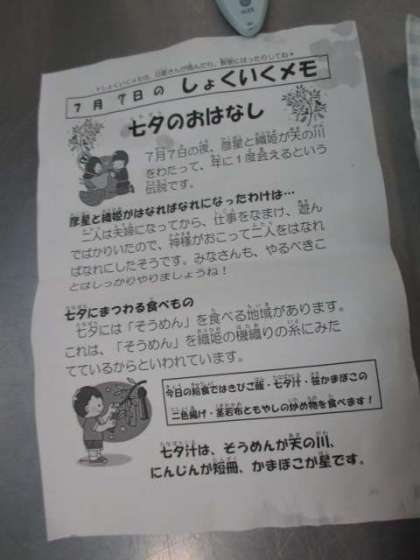 ↑しょくいくメモは、日直さんが読んだら、教室にはったりしてね↑
7月 7日の しょくいくメモ
七夕のおはなし
7月7日の夜、彦星と織姫が天の川
をわたって、年に1度会えるという
伝説です。
彦星と織姫がはなればなれになったわけは…
二人は夫婦になってから、仕事をなまけ、遊ん
でばかりいたので、神様がおこって二人をはなれ
ばなれにしたそうです。みなさんも、やるべきこ
とはしっかりやりましょうね！
七夕にまつわる食べもの
七夕には「そうめん」を食べる地域があります。
これは、「そうめん」を織姫の機織りの糸にみた
てているからといわれています。
今日の給食ではきびご飯・七夕汁・笹かまぼこの
二色揚げ・茎若布ともやしの炒め物を食べます！
七夕汁は、そうめんが天の川、
にんじんが短冊、かまぼこが星です。